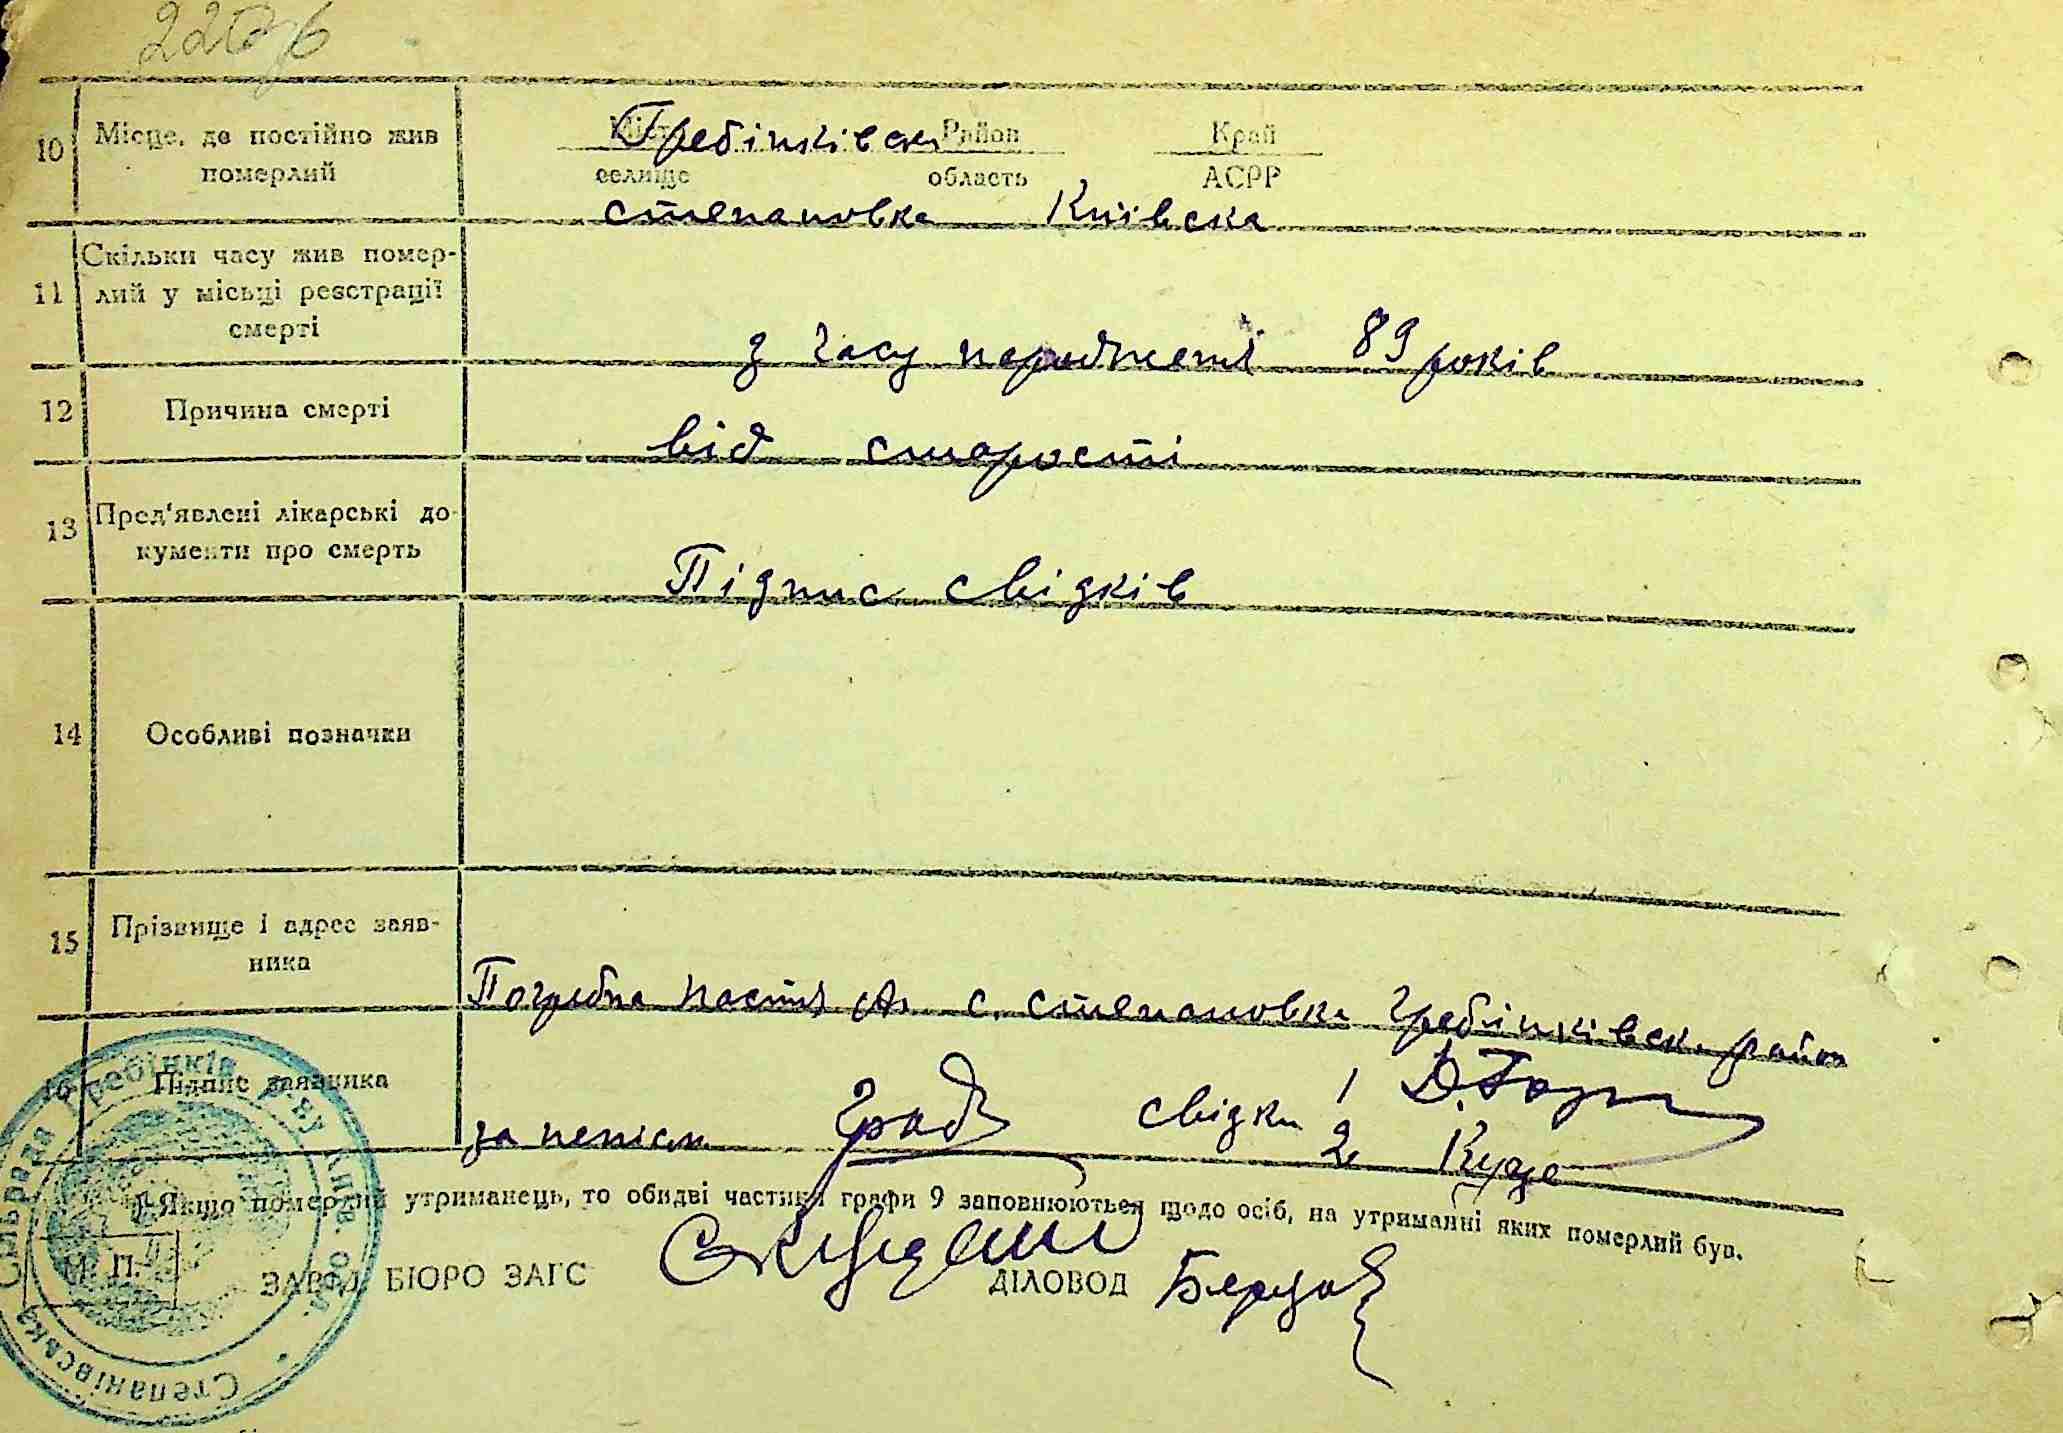 10 Місце, де постійно жив померлий
Місто Район Край
Гребінківськ
селище область АСРР
степановка Київска
11 Скільки часу жив помер-
лий у місьці реєстрації
смерті
з часу народження 89 років
12 Причина смерті
від старости
13 Пред'явлені лікарські до
кументи про смерть
Підпис свідків
14 Особливі позначки
15 Прізвище і адрес заяв-
ника
Погребна Настя с. степановка Гребінківськ. район
16 Підпис заявника
за неписм. свідки 1
2
1) Якщо померлий утриманець, то обидві частини графи 9 заповнюються щодо осіб, на утриманні яких померлий був.
М. П.
ЗАВІД. БЮРО ЗАГС ДІЛОВОД
Степанівська Сільрада Гребінків р-ну